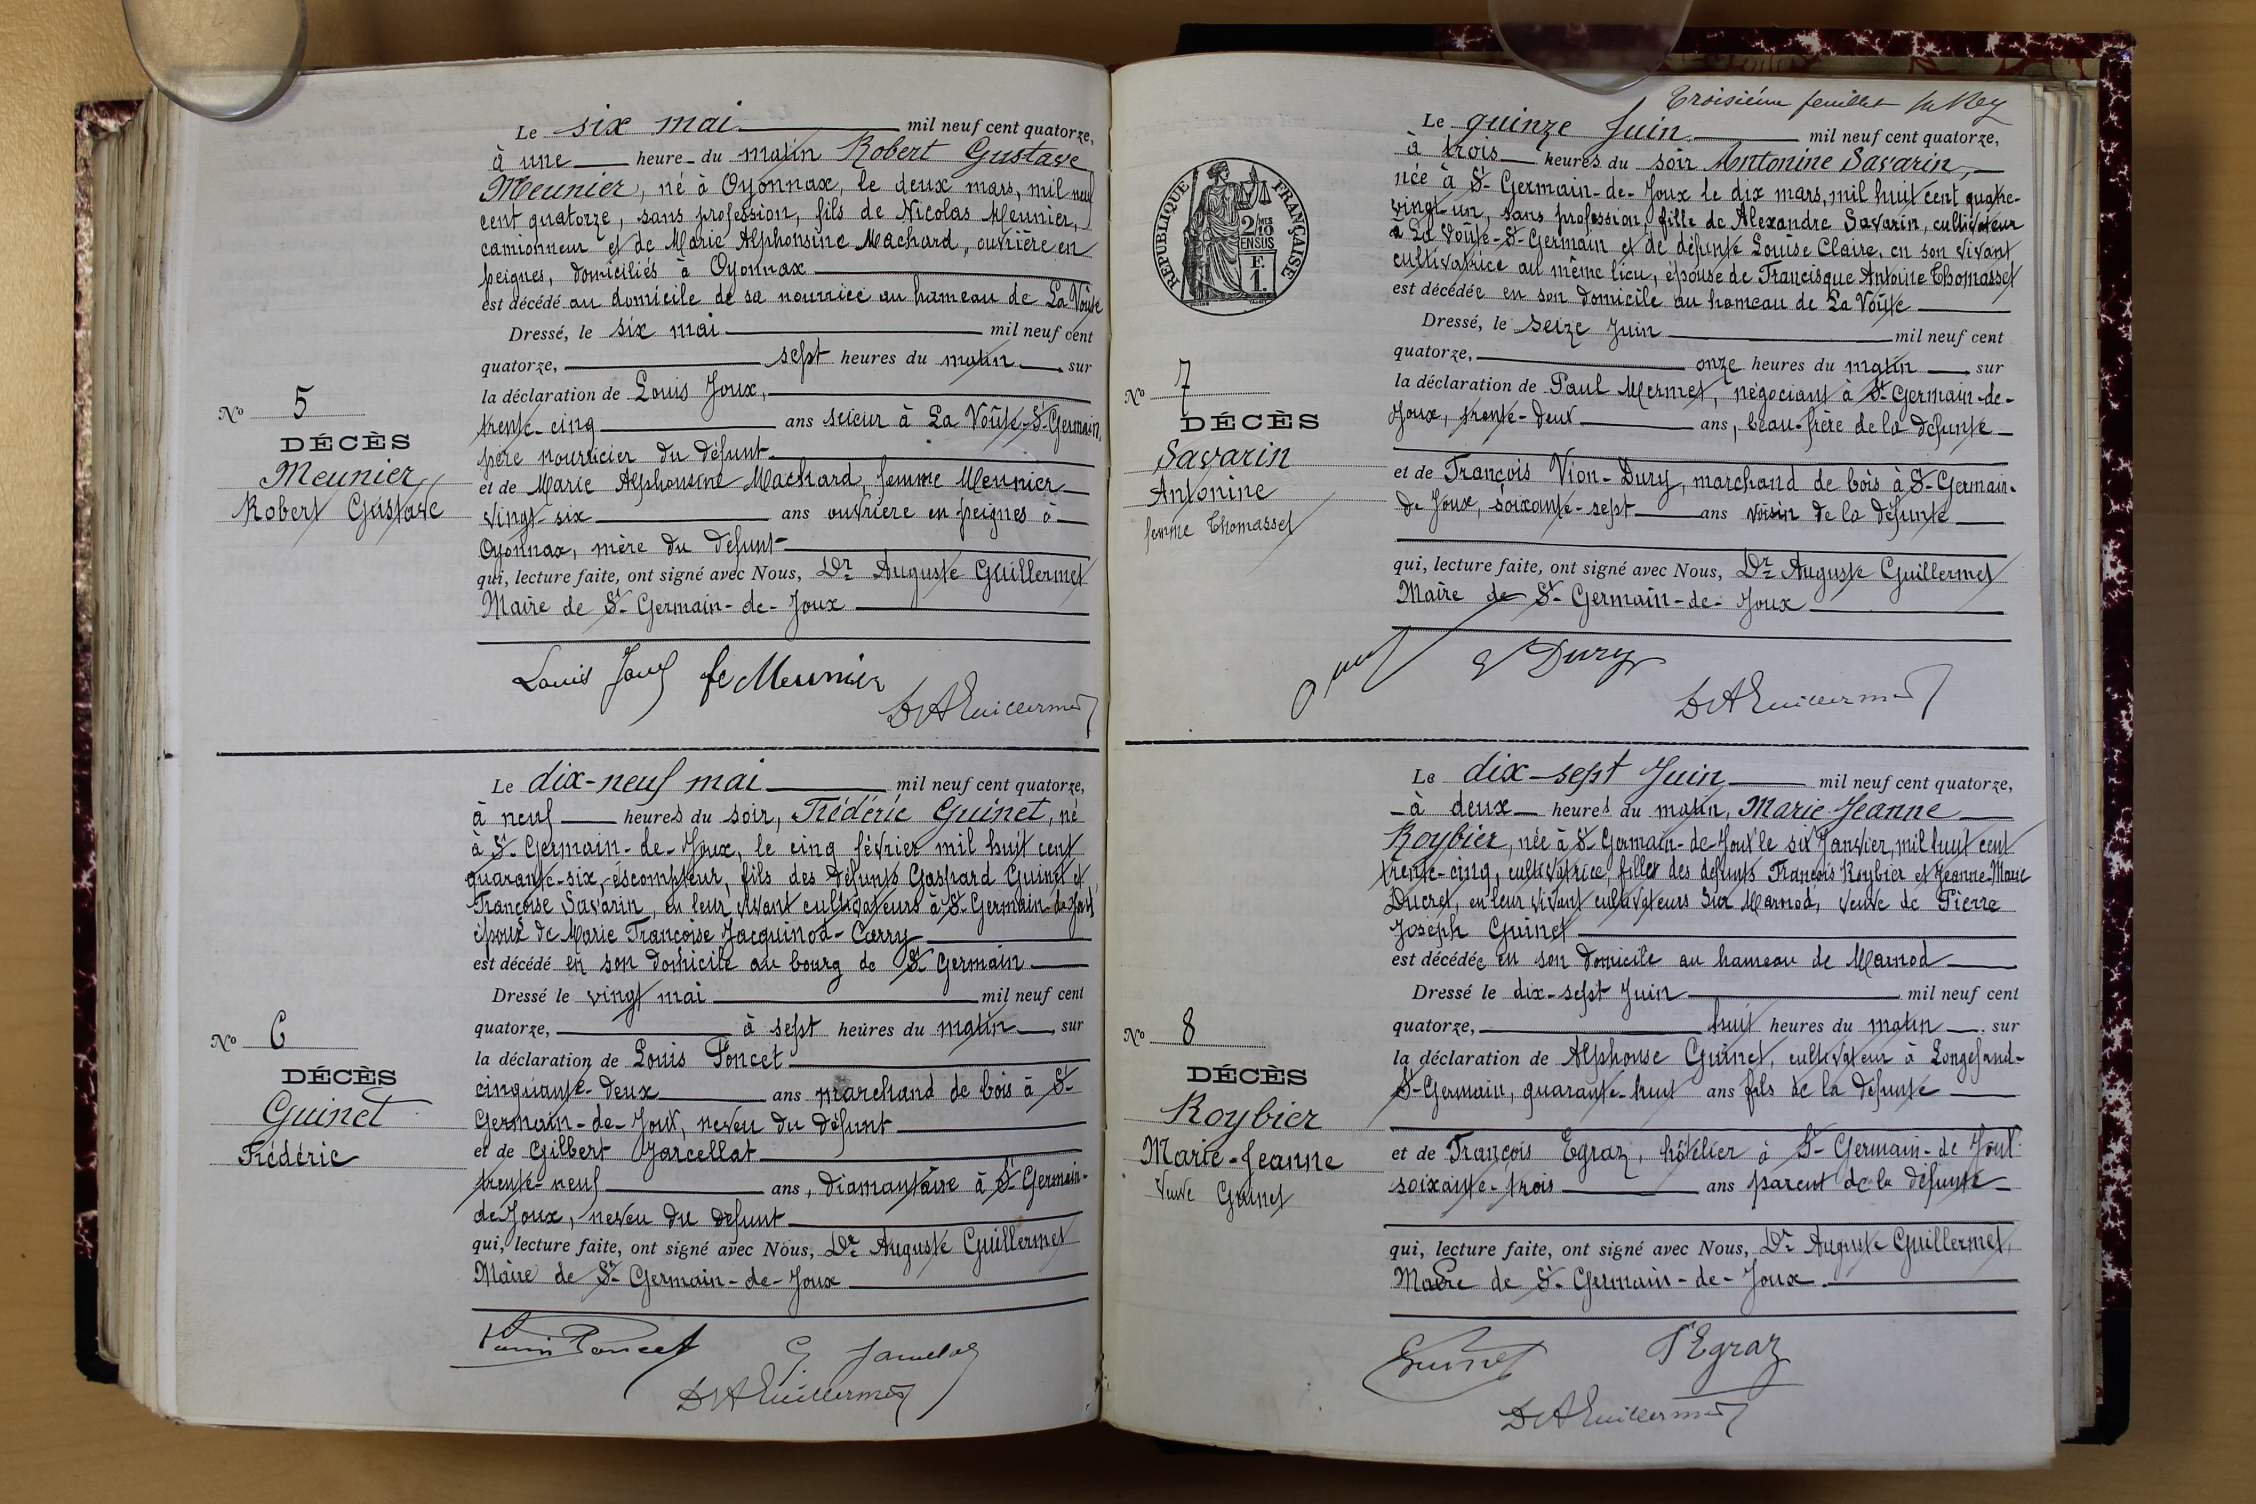 Le six mai mil neuf cent quatorze,
à une heure du matin Robert Gustave
Meunier, né à Oyonnax, le deux mars, mil neuf
cent quatorze, sans profession, fils de Nicolas Meunier,
camionneur et de Marie Alphonsine Machard, ouvrière en
peignes, domiciliés à Oyonnax
est décédé au domicile de sa nourrice au hameau de La Voûte
Dressé, le six mai mil neuf cent
quatorze, sept heures du matin, sur
la déclaration de Louis Joux,
trente-cinq ans scieur à La Voûte-St-Germain,
père nourricier du défunt
et de Marie Alphonsine Machard, femme Meunier
vingt-six ans ouvrière en peignes à
Oyonnax, mère du défunt
qui, lecture faite, ont signé avec Nous, Dr Auguste Guillermet
Maire de St-Germain-de-Joux
No 5
DÉCÈS
Meunier
Robert Gustave
Louis Joux fe Meunier
Dr A Guillermet
Le dix-neuf mai mil neuf cent quatorze,
à neuf heures du soir, Frédéric Guinet, né
à St-Germain-de-Joux, le cinq février mil huit cent
quarante-six, escompteur, fils des défunts Gaspard Guinet et
Françoise Savarin, en leur vivant cultivateurs à St-Germain-de-Joux
époux de Marie Françoise Jacquinod-Carry
est décédé en son domicile au bourg de St Germain
Dressé le vingt mai mil neuf cent
quatorze, à sept heures du matin, sur
la déclaration de Louis Poncet
cinquante-deux ans marchand de bois à St-
Germain-de-Joux, neveu du défunt
et de Gilbert Jarcellat
trente-neuf ans, diamantaire à St-Germain-
de-Joux, neveu du défunt
qui, lecture faite, ont signé avec Nous, Dr Auguste Guillermet
Maire de St-Germain-de-Joux
No 6
DÉCÈS
Guinet
Frédéric
Louis Poncet
Dr A Guillermet
Troisième feuillet
Le quinze Juin mil neuf cent quatorze,
à trois heures du soir Antonine Savarin,
née à St-Germain-de-Joux le dix mars, mil huit cent quatre-
vingt-un, sans profession, fille de Alexandre Savarin, cultivateur
à La Voûte-St-Germain et de défunte Louise Claire, en son vivant
cultivatrice au même lieu, épouse de Francisque Antoine Thomasset
est décédée en son domicile au hameau de La Voûte
Dressé, le seize Juin mil neuf cent
quatorze, onze heures du matin, sur
la déclaration de Paul Mermet, négociant à St-Germain-de-
Joux, trente-deux ans, beau-frère de la défunte
et de François Vion-Dury, marchand de bois à St-Germain-
de Joux, soixante-sept ans voisin de la défunte
qui, lecture faite, ont signé avec Nous, Dr Auguste Guillermet
Maire de St-Germain-de-Joux
RÉPUBLIQUE FRANÇAISE
2/10
EN SUS
F.
1.
No 7
DÉCÈS
Savarin
Antonine
femme Thomasset
V Dury
Dr A Guillermet
Le dix-sept Juin mil neuf cent quatorze,
à deux heures du matin, Marie-Jeanne
Roybier, née à St-Germain-de-Joux le six Janvier, mil huit cent
trente-cinq, cultivatrice, fille des défunts François Roybier et Jeanne-Marie
Ducret, en leur vivant cultivateurs Sur Marnod, veuve de Pierre
Joseph Guinet
est décédée en son domicile au hameau de Marnod
Dressé le dix-sept Juin mil neuf cent
quatorze, huit heures du matin, sur
la déclaration de Alphonse Guinet, cultivateur à Longefand-
St-Germain, quarante-huit ans fils de la défunte
et de François Egraz, hôtelier à St-Germain-de Joux
soixante-trois ans parent de la défunte
qui, lecture faite, ont signé avec Nous, Dr Auguste Guillermet,
Maire de St-Germain-de-Joux.
No 8
DÉCÈS
Roybier
Marie-Jeanne
Veuve Guinet
Guinet F Egraz
Dr A Guillermet